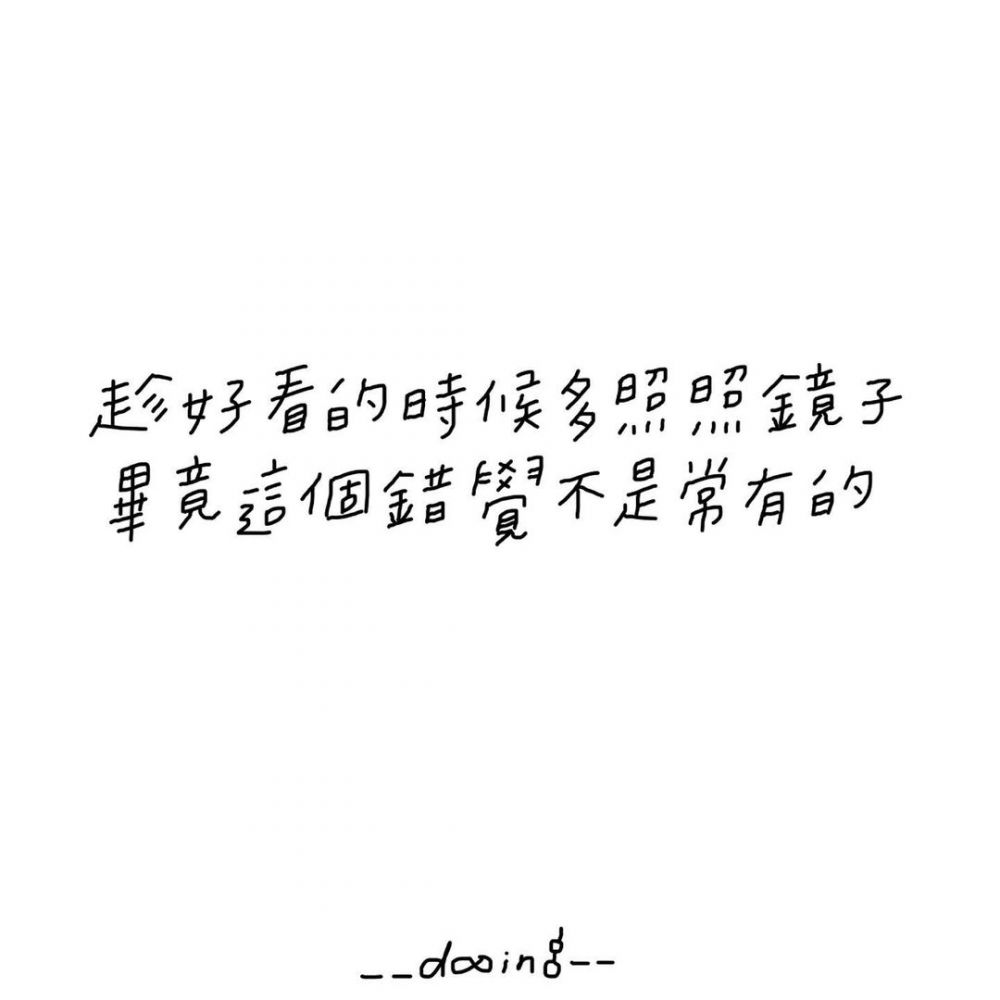 趁好看的時候多照照鏡子
畢竟這個錯覺不是常有的
__dooing--